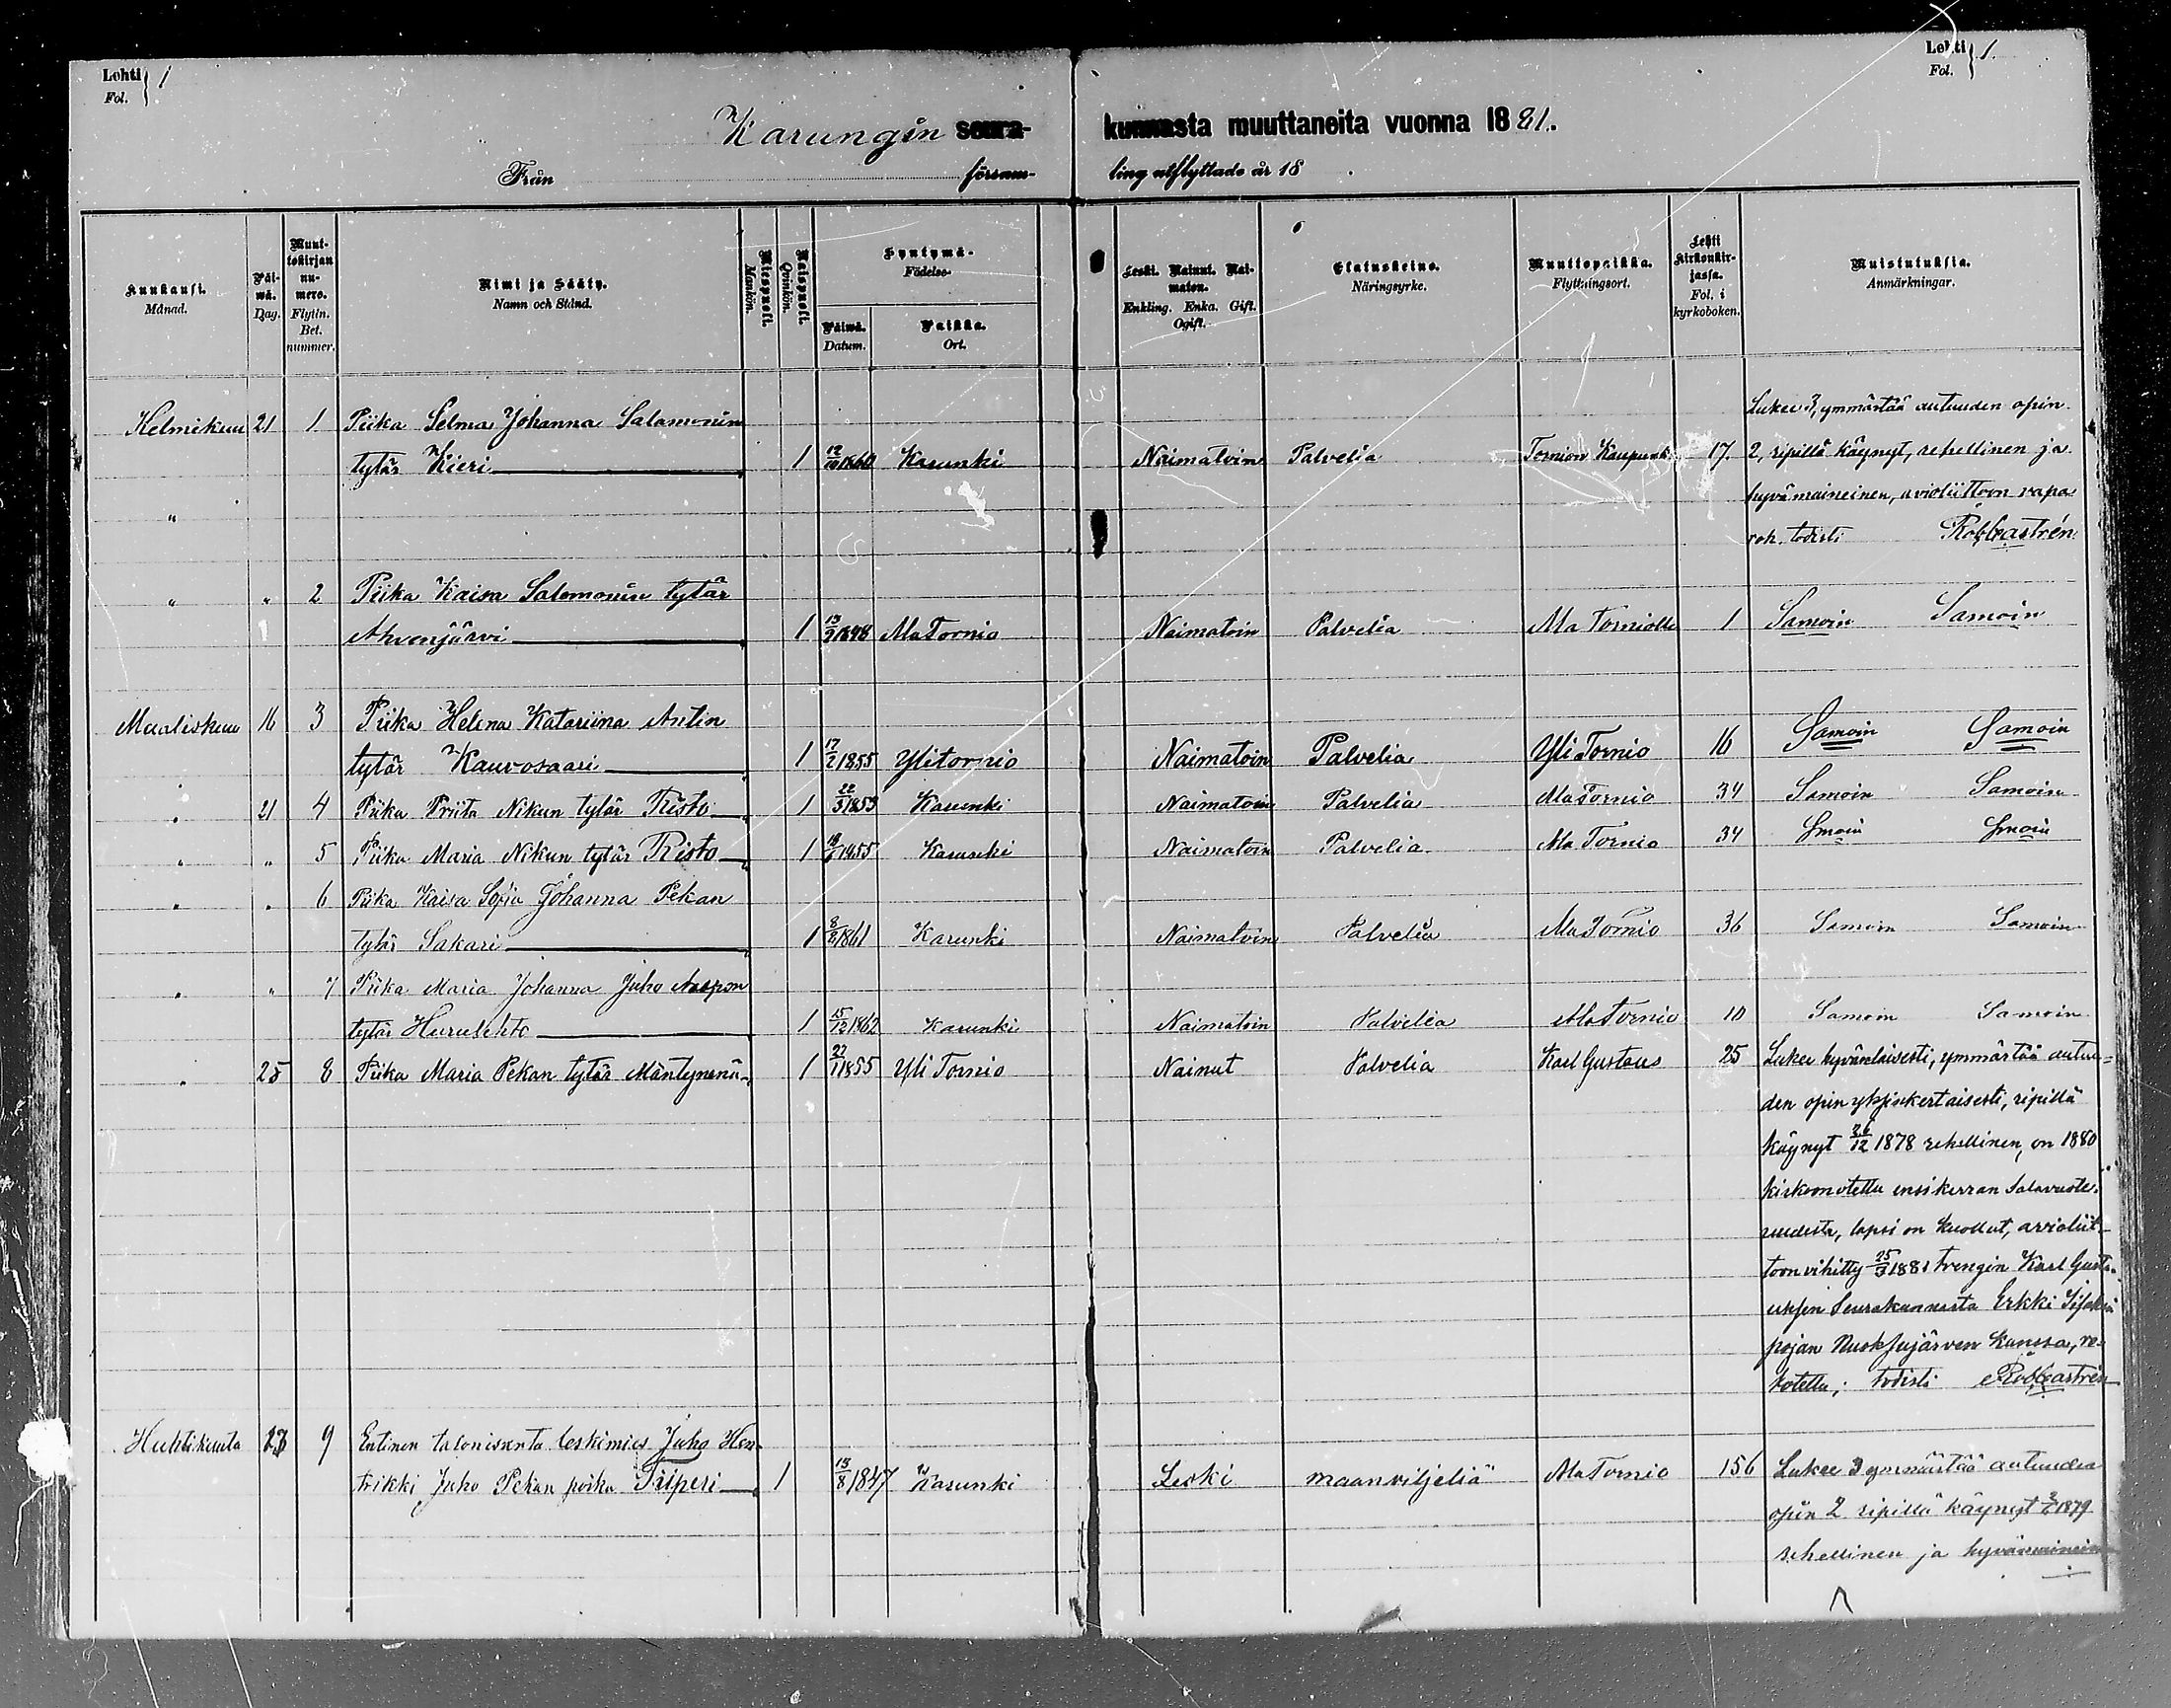 Lohti 1
Fol.
Lehti 1.
Fol.
Karungin seura-kunnasta muuttaneita vuonna 1881.
Från försam-ling utflyttade år 18 .
Kuukausi. Månad.
Päi-wä. Dag.
Muut-tokirjan nu-mero. Flyttn. Bet. nummer.
Nimi ja Sääty. Namn och Stånd.
Miespuoli. Mankön.
Naispuoli. Qvinkön.
Syntymä- Födelse-
Päiwä. Datum.
Paikka. Ort.
Leski. Nainut. Nai-maton. Enkling. Enka. Gift. Ogift.
Elatuskeino. Näringsyrke.
Muuttopaikka. Flyttningsort.
Lehti kirkonkir-jassa. Fol. i kyrkoboken.
Muistutuksia. Anmärkningar.
Lukee 3, ymmärtää autuuden opin
Helmikuu 21 1 Piika Selma Johanna Salamonin
tytär Kieri 1 12/10 1860 Karunki Naimatoin Palvelia Tornion Kaupunk 17. 2, ripillä käynyt, rehellinen ja
hyvämaineinen, avioliittoon vapa
" roh. todisti Rob. Castrén
" " 2 Piika Kaisa Salomonin tytär
Ahvenjärvi 1 13/9 1848 AlaTornio Naimatoin Palvelia Ala Torniolle 1 Samoin Samoin
Maaliskuu 16 3 Piika Helena Katariina Antin
tytär Kauvosaari 1 17/2 1855 Ylitornio Naimatoin Palvelia Yli Tornio 16 Samoin Samoin
" 21 4 Piika Priita Nikun tytär Risto 1 22/3 1853 Karunki Naimatoin Palvelia AlaTornio 34 Samoin Samoin
" " 5 Piika Maria Nikun tytär Risto 1 1855 Karunki Naimatoin Palvelia Ala Tornio 34 Smoin Smoin
" " 6 Piika Kaisa Sofia Johanna Pekan
tytär Sakari 1 8/2 1861 Karunki Naimatoin Palvelia AlaTornio 36 Samoin Samoin
" " 7 Piika Maria Johanna Juho Aaapon
tytär Hurulehto 1 15/12 1862 Karunki Naimatoin Palvelia AlaTornio 10 Samoin Samoin
" 25 8 Piika Maria Pekan tytär Mäntynenä 1 22/1 1855 Yli Tornio Nainut Palvelia Karl Gustaus 25 Lukee hyvänlaisesti, ymmärtää autuu=
den opin yksinkertaisesti, ripillä
käynyt 26/12 1878 rehellinen, on 1880
kirkoonotettu ensikerran salavuote
uudesta, lapsi on kuollut, avioliit-
toon vihitty 25/3 1881 trengin Karl Gusta
uksen Seurakunnasta Erkki
pojan Nuoksujärven kanssa, ro-
kotettu; todisti Rob. Castrén
Huhtikuuta 9 Entinen talonisäntä leskimies Juho Hen
trikki Juho Pekan poika Piiperi 1 13/8 1847 Karunki Leski maanviljeliä AlaTornio 156 Lukee 3 ymmärtää autuuden
opin 2 ripillä käynyt 1879
rehellinen ja hyvämainein